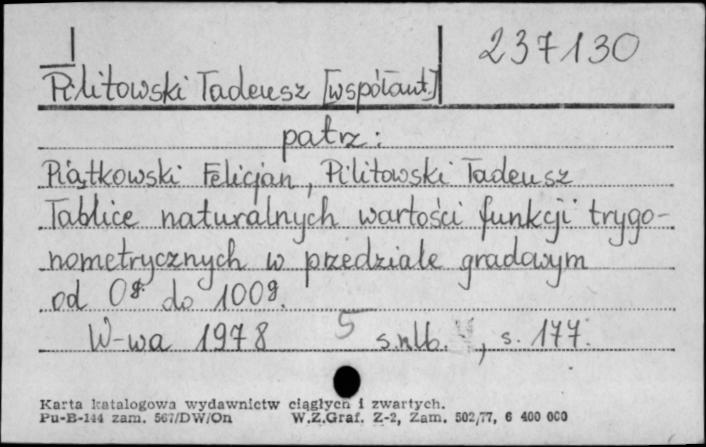 237130
Pilitowski Tadeusz [współaut.]
patrz:
Piątkowski Felicjan, Pilitowski Tadeusz
Tablice naturalnych wartości funkcji trygo-
nometrycznych w przedziale gradowym
od 0g do 100g.
W-wa 1978 5 s.nlb. , s. 177.
Karta katalogowa wydawnictw ciągłych i zwartych.
Pu-B-144 zam. 567/DW/On W.Z.Graf. Z-2, Zam. 502/77, 6 400 000